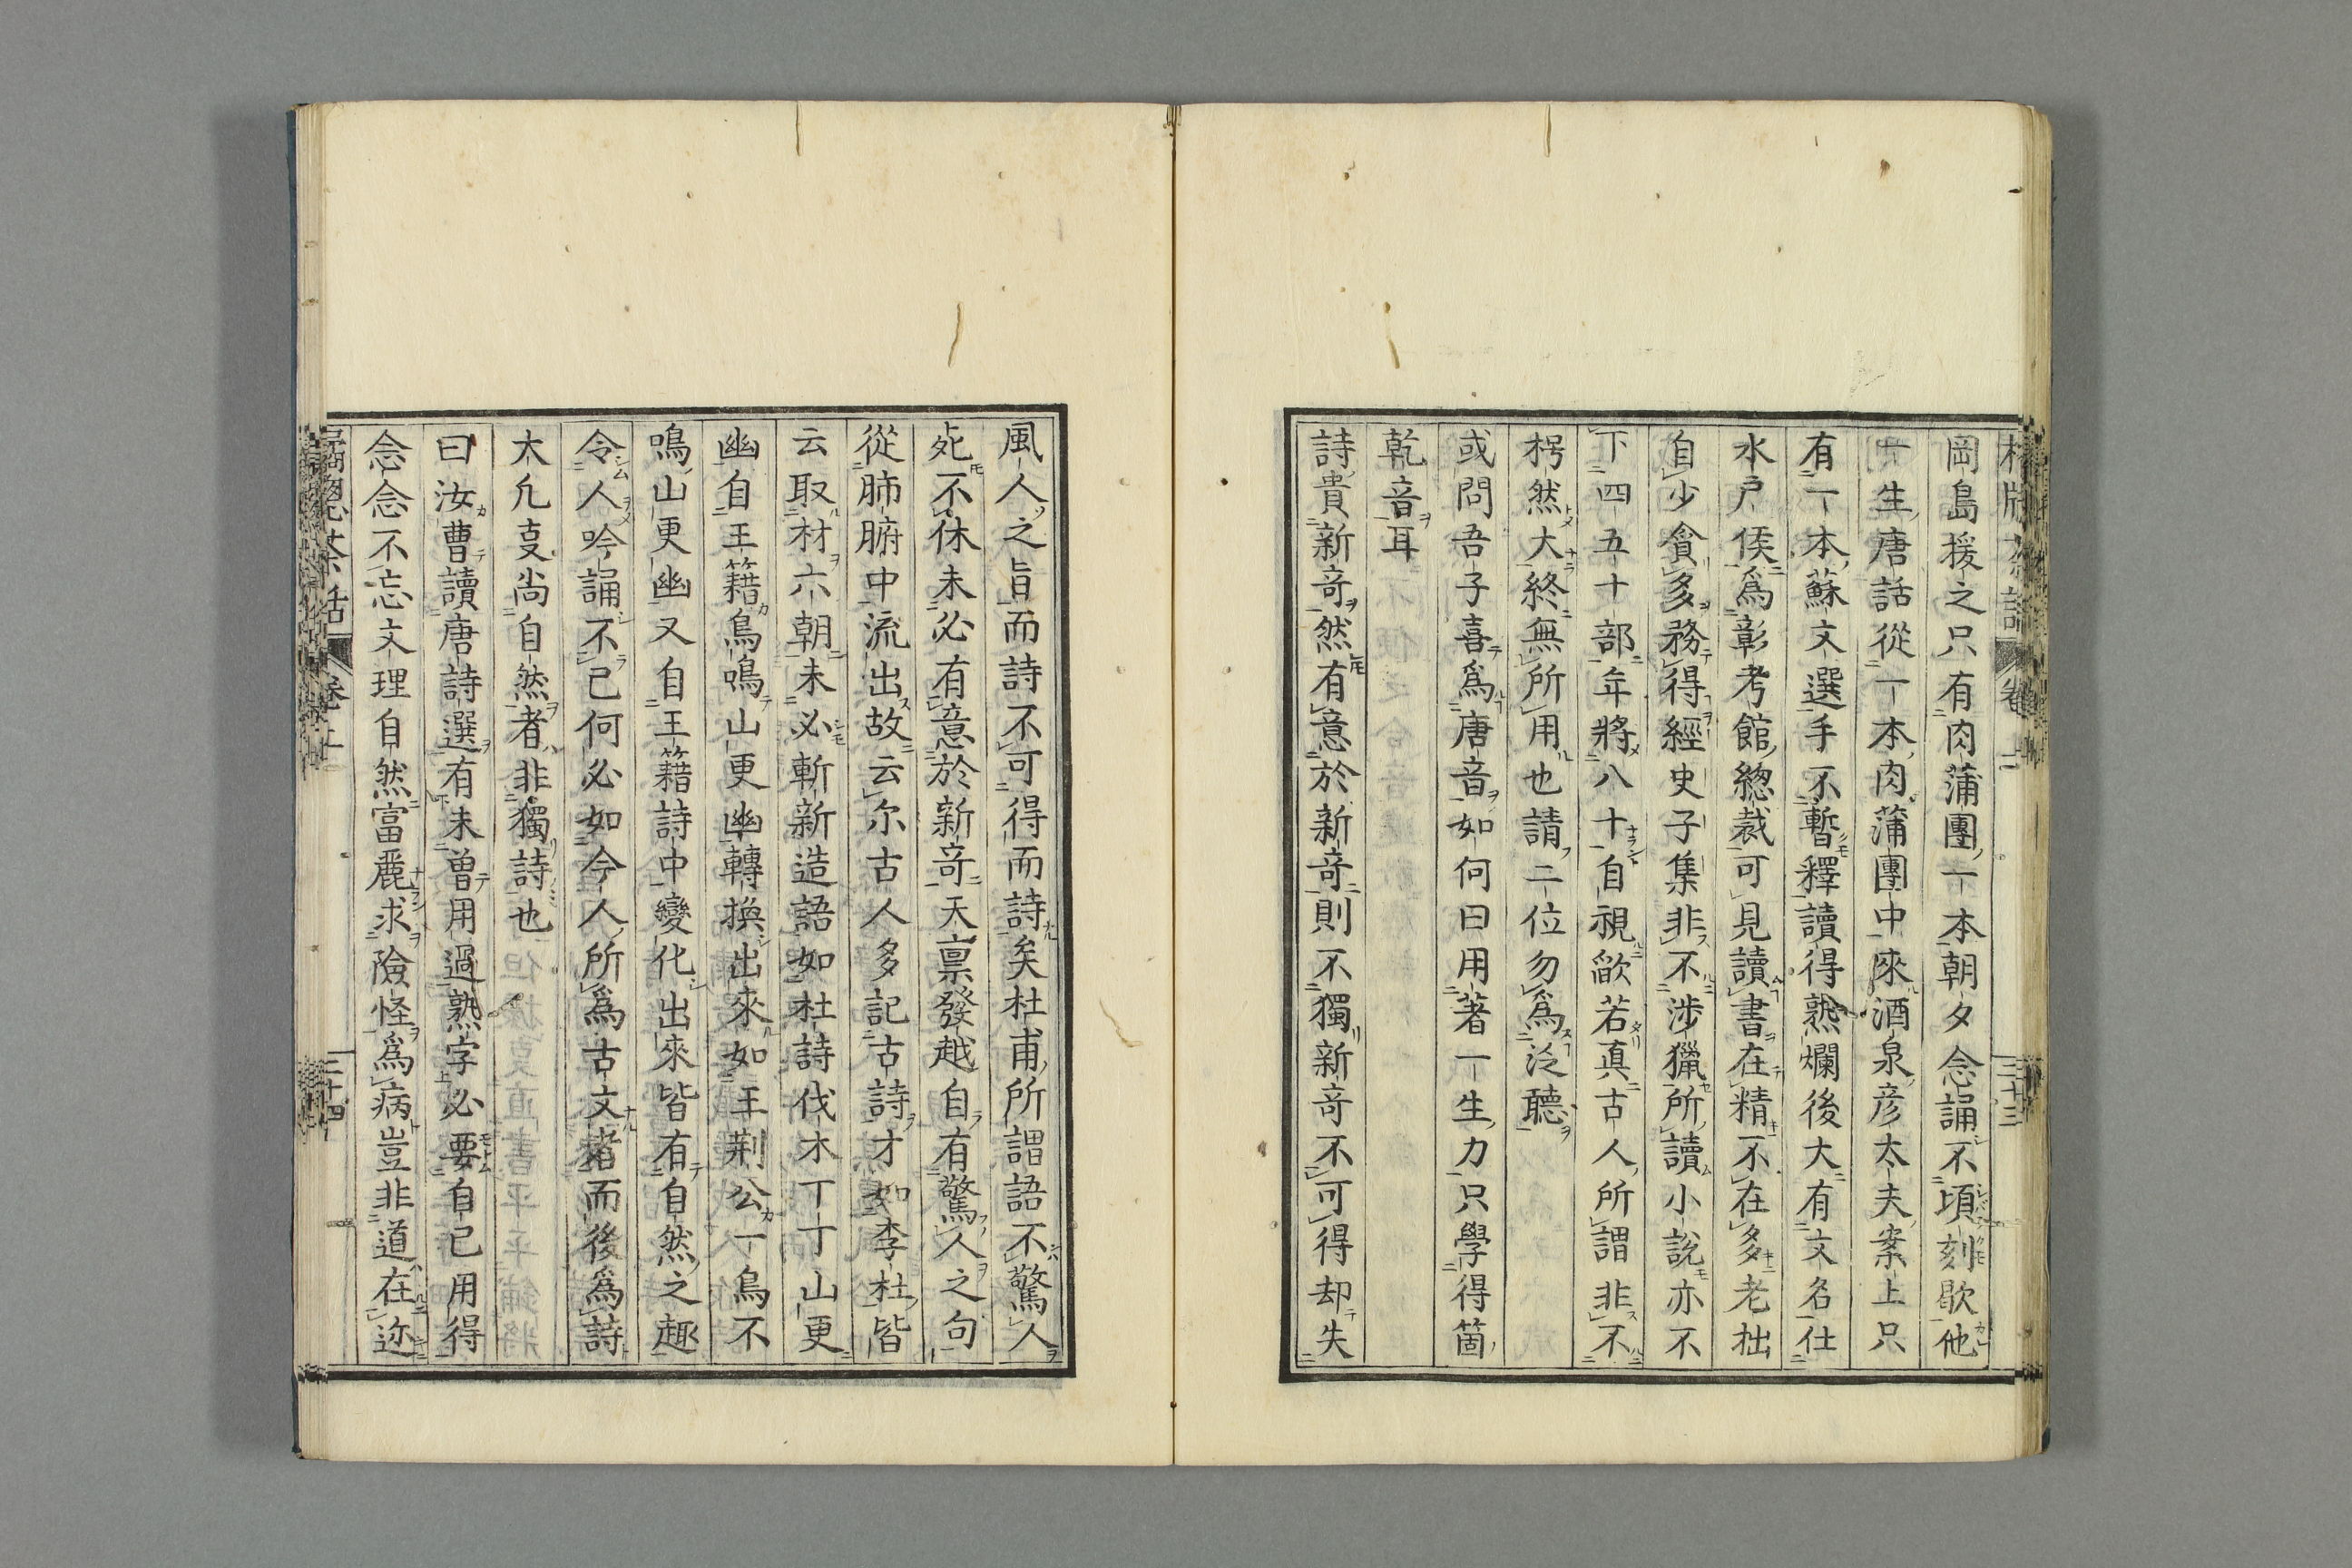 岡島援之只有肉蒲團一本朝夕念誦不頃刻歇他
一生唐話從一本肉蒲團中來酒泉彦太夫案上只
有一本蘇文選手不暫釋讀得熟爛後大有文名仕
水戶侯爲彰考館總裁可見讀書在精不在多老拙
自少貪多務得經史子集非不涉獵所讀小說亦不
下四五十部年將八十自視歉若真古人所謂非不
枵然大終無所用也請二位勿爲泛聽
或問吾子喜爲唐音如何曰用著一生力只學得箇
乾音耳
詩貴新竒然有意於新竒則不獨新竒不可得却失
風人之旨而詩不可得而詩矣杜甫所謂語不驚人
死不休未必有意於新竒天稟發越自有驚人之句
從肺腑中流出故云尔古人多記古詩才如李杜皆
云取材六朝未必斬新造語如杜詩伐木丁丁山更
幽自王籍鳥鳴山更幽轉換出來如王荆公一鳥不
鳴山更幽又自王籍詩中變化出來皆有自然之趣
令人吟誦不已何必如今人所爲古文猪而後爲詩
大凡㕝尚自然者非獨詩也
曰汝曹讀唐詩選有未曽用過熟字必要自己用得
念念不忘文理自然富麗求險怪爲病豈非道在迩
卷上
三十三
三十四